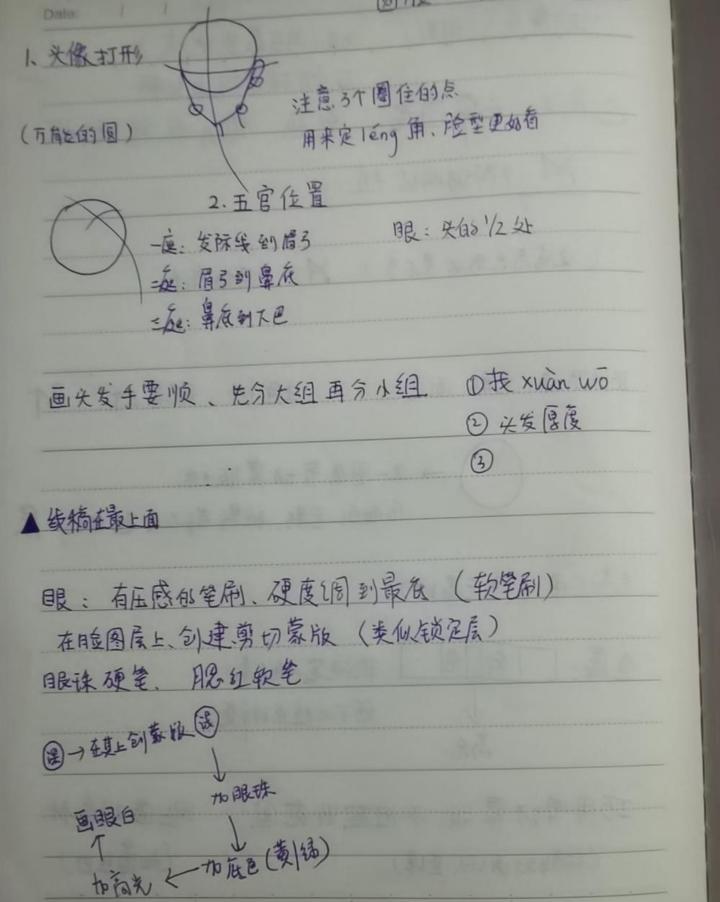 Date:
1、头像打形
(万能的圆)
注意3个圈住的点
用来定léng角、脸型更好看
2.五官位置
一庭：发际线到眉弓
二庭：眉弓到鼻底
三庭：鼻底到下巴
眼：头的1/2处
画头发手要顺、先分大组再分小组
①找xuàn wō
②头发厚度
③
▲线稿在最上面
眼：有压感的笔刷、硬度调到最底（软笔刷）
在脸图层上、创建剪切蒙版（类似锁定层）
眼珠硬笔、腮红软笔
→在其上创蒙版
加眼珠
加底色(黄|绿)
加高光
画眼白